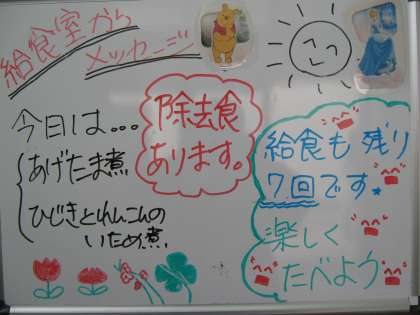 給食室から
メッセージ
今日は...
あげたま煮
ひじきとれんこんの
いため煮
除去食
あります。
給食も残り
7回です。
楽しく
たべよう